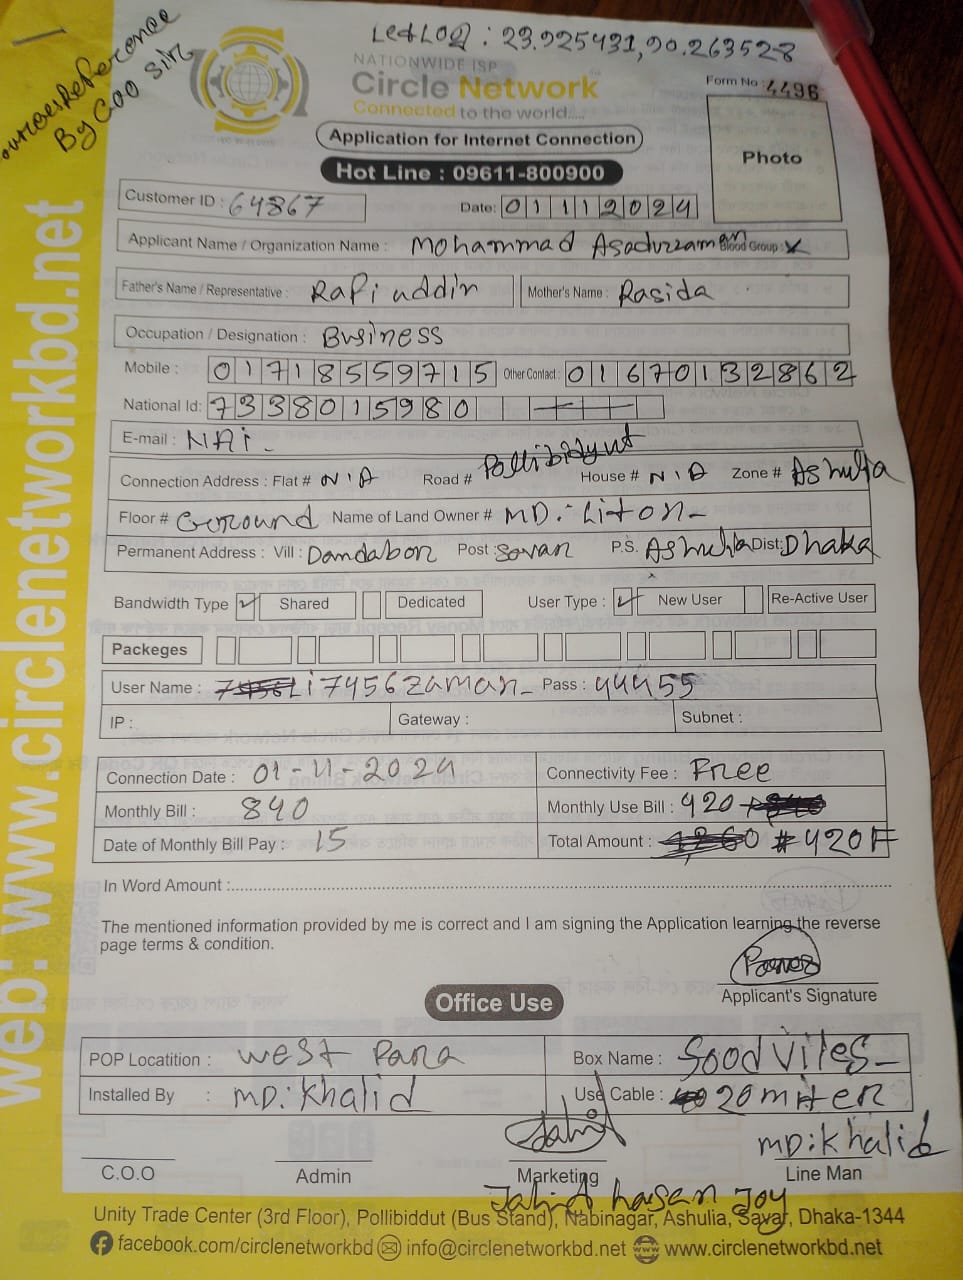 Reference
By COO Sir
Let LOg : 23.925431,90.263528
NATIONWIDE ISP
Circle Network
Connected to the world.....
Form No : 4496
Application for Internet Connection
Hot Line : 09611-800900
Photo
Customer ID : 64867 Date: 01112024
Applicant Name / Organization Name : Mohammad Asaduzzaman Blood Group : x
Father's Name / Representative : Rafiuddin Mother's Name : Rasida
Occupation / Designation : Business
Mobile : 01718559715 Other Contact : 01670132862
National Id: 7338015980
E-mail : NAi
Connection Address : Flat # N'A Road # Pollibidyut House # N'A Zone # Ashulia
Floor # Ground Name of Land Owner # MD. Liton
Permanent Address : Vill : Dandabon Post : Savar P.S. Ashulia Dist: Dhaka
Bandwidth Type ✓ Shared Dedicated User Type : ✓ New User Re-Active User
Packeges
User Name : i7456zaman Pass : 44455
IP : Gateway : Subnet :
Connection Date : 01-11-2024 Connectivity Fee : Free
Monthly Bill : 840 Monthly Use Bill : 420
Date of Monthly Bill Pay : 15 Total Amount : # 420
In Word Amount :
The mentioned information provided by me is correct and I am signing the Application learning the reverse
page terms & condition.
Applicant's Signature
Office Use
POP Locatition : West Para Box Name : Sood Viles
Installed By : MD: Khalid Use Cable : 20 miter
MD: Khalid
C.O.O Admin Marketing Line Man
Jahid hasan Joy
Unity Trade Center (3rd Floor), Pollibiddut (Bus Stand), Nabinagar, Ashulia, Savar, Dhaka-1344
facebook.com/circlenetworkbd info@circlenetworkbd.net www.circlenetworkbd.net
web: www.circlenetworkbd.net